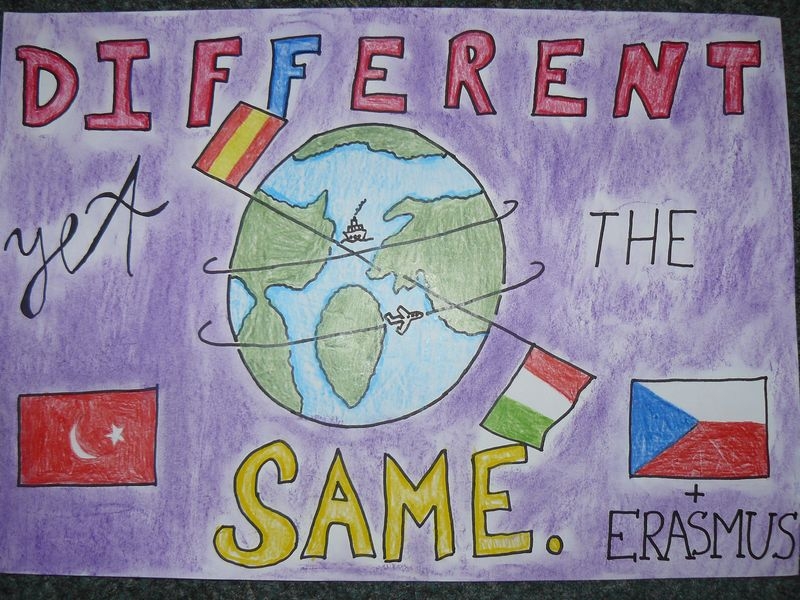 DIFFERENT
yet THE
SAME.
+
ERASMUS